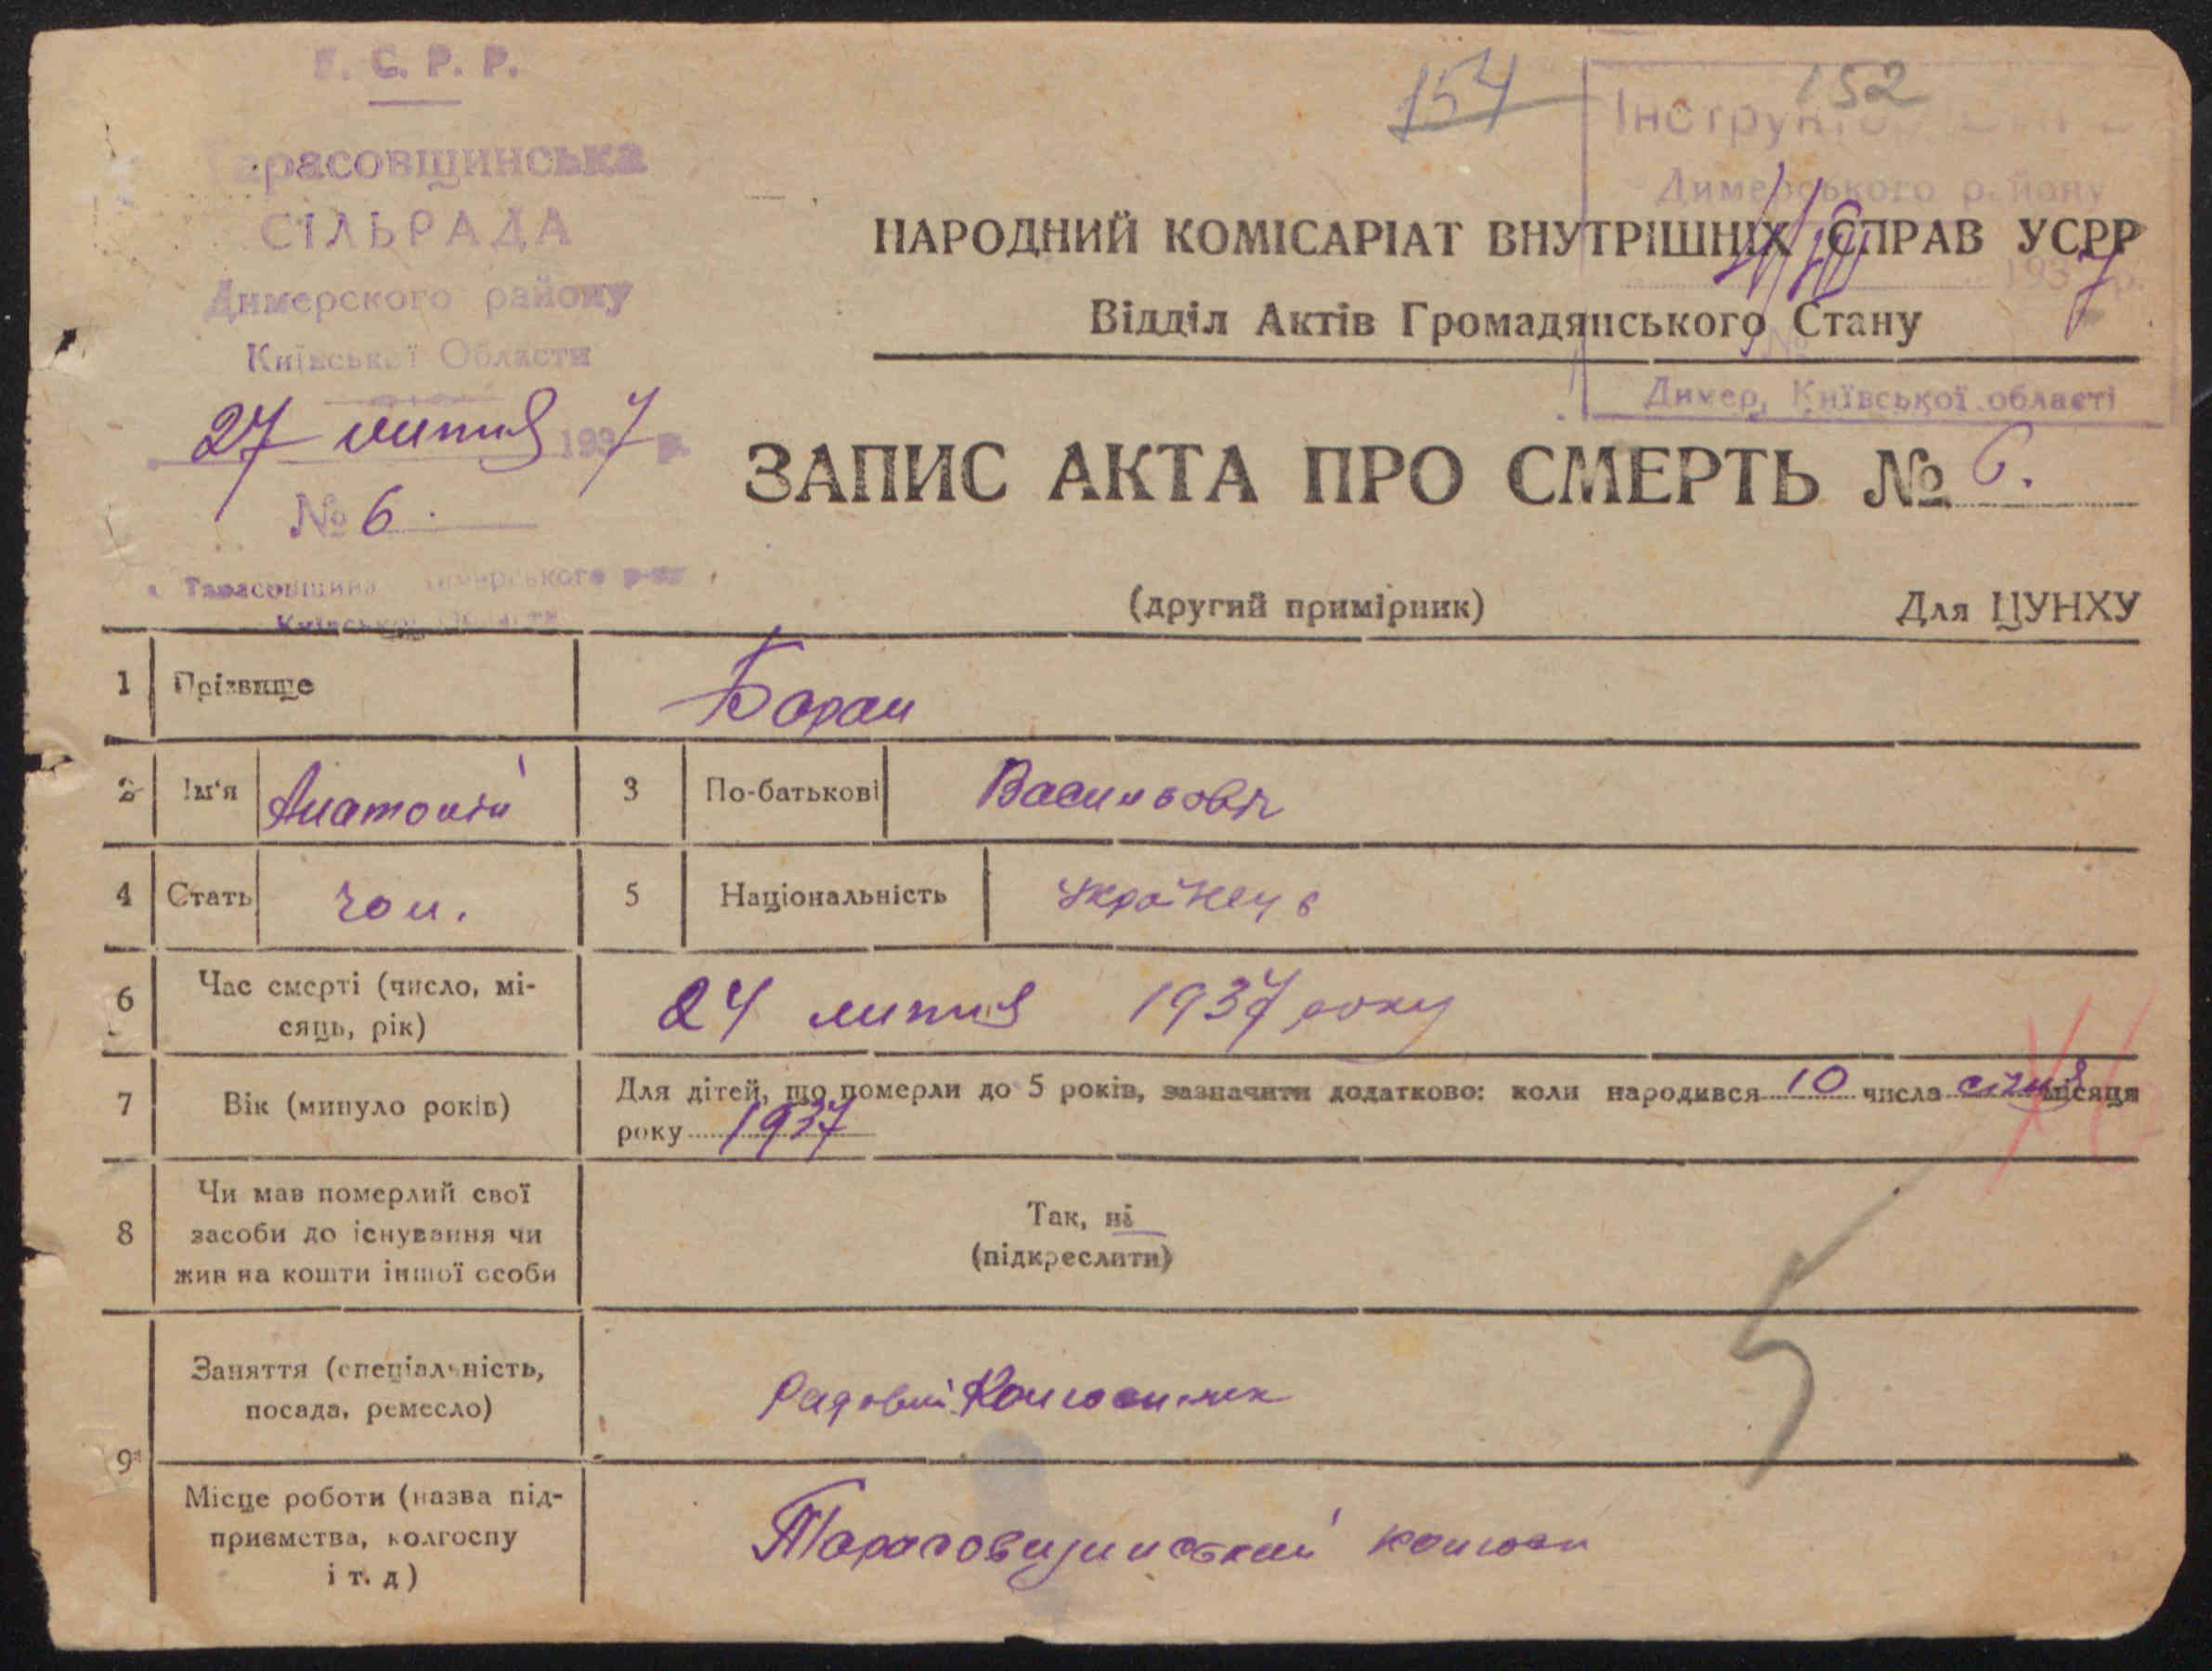 У. С. Р. Р.
Тарасовщинська
СІЛЬРАДА
Димерского району
Київської Области
27 липня 1937 р.
№ 6.
Тарасовщина Димерського р-ну
Київської Области
154
152
Димерського району
1937 р.
№
Димер, Київської області
НАРОДНИЙ КОМІСАРІАТ ВНУТРІШНІХ СПРАВ УСРР
Відділ Актів Громадянського Стану
ЗАПИС АКТА ПРО СМЕРТЬ № 6.
(другий примірник) Для ЦУНХУ
1 Прізвище Баран
2 Ім'я Анатолій 3 По-батькові Васильович
4 Стать чол. 5 Національність українець
6 Час смерті (число, мі-
сяць, рік) 24 липня 1937 року
7 Вік (минуло років) Для дітей, що померли до 5 років, зазначити додатково: коли народився 10 числа січня місяця
року 1937
8 Чи мав померлий свої
засоби до існування чи
жив на кошти іншої особи
Так, ні
(підкреслити)
9 Заняття (спеціальність,
посада, ремесло) Рядовий Колгоспник
Місце роботи (назва під-
приємства, колгоспу
і т. д) Тарасовщинський колгосп
5